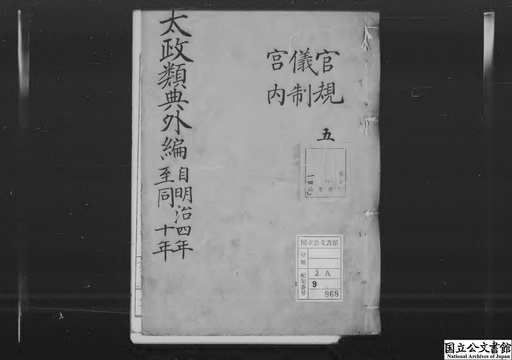 官規
儀制
宮内
五
太政類典外編
自明治四年
至同十年
国立公文書館
分類
配架番号
2 A
9
868
国立公文書館
National Archives of Japan